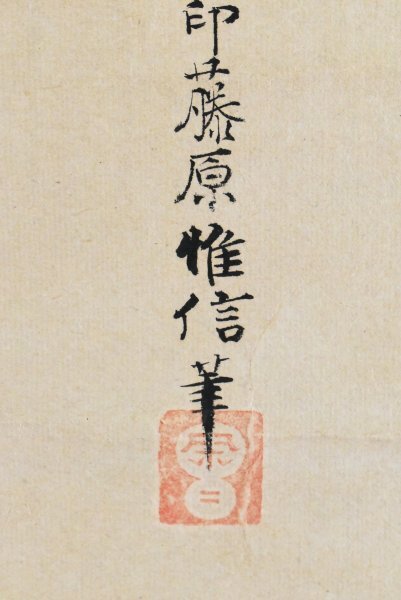 印藤原惟信筆